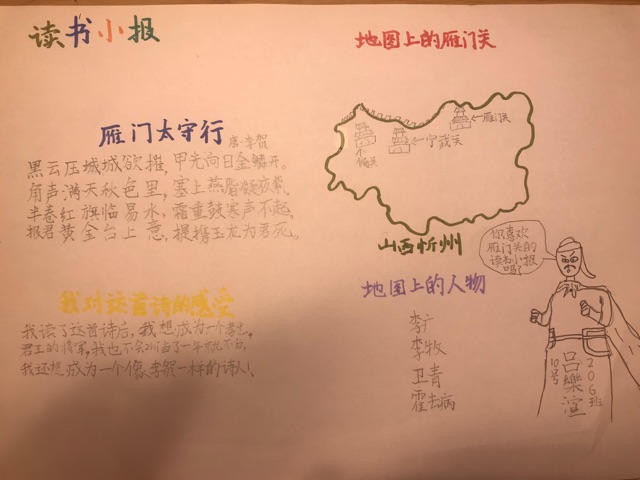 读书小报
雁门太守行
唐·李贺
黑云压城城欲摧,甲光向日金鳞开。
角声满天秋色里,塞上燕脂凝夜紫。
半卷红旗临易水,霜重鼓寒声不起。
报君黄金台上意,提携玉龙为君死。
我对这首诗的感受
我读了这首诗后,我想成为一个
君王的将军,我也不会
我还想成为一个像李贺一样的诗人!
地图上的雁门关
←雁门关
←宁武关
偏关
山西忻州
地图上的人物
李广
李牧
卫青
霍去病
你喜欢
雁门关的
读书小报
吗?
206班
吕樂渲
10号